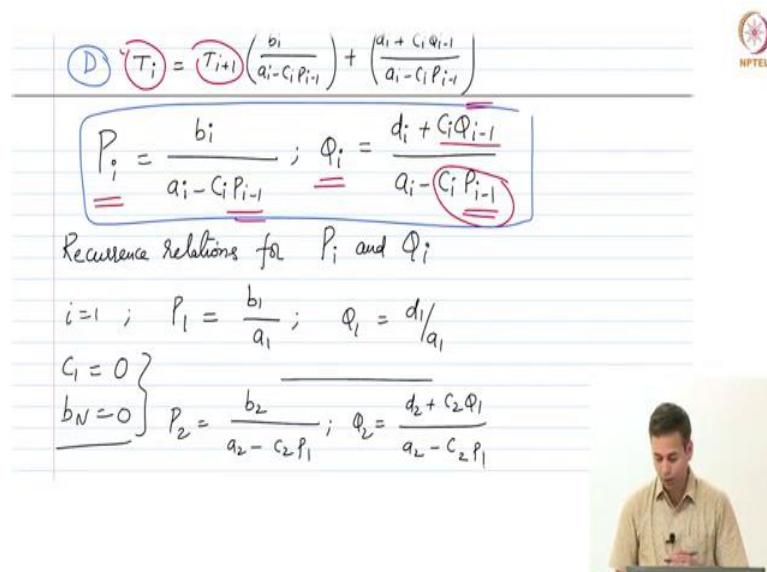 D T_i = T_{i+1} (b_i / (a_i - C_i P_{i-1})) + (d_i + C_i Q_{i-1} / (a_i - C_i P_{i-1}))
NPTEL
P_i = b_i / (a_i - C_i P_{i-1}) ; Q_i = (d_i + C_i Q_{i-1}) / (a_i - C_i P_{i-1})
Recurrence relations for P_i and Q_i
i=1 ; P_1 = b_1 / a_1 ; Q_1 = d_1/a_1
C_1 = 0
b_N = 0 } P_2 = b_2 / (a_2 - C_2 P_1) ; Q_2 = (d_2 + C_2 Q_1) / (a_2 - C_2 P_1)